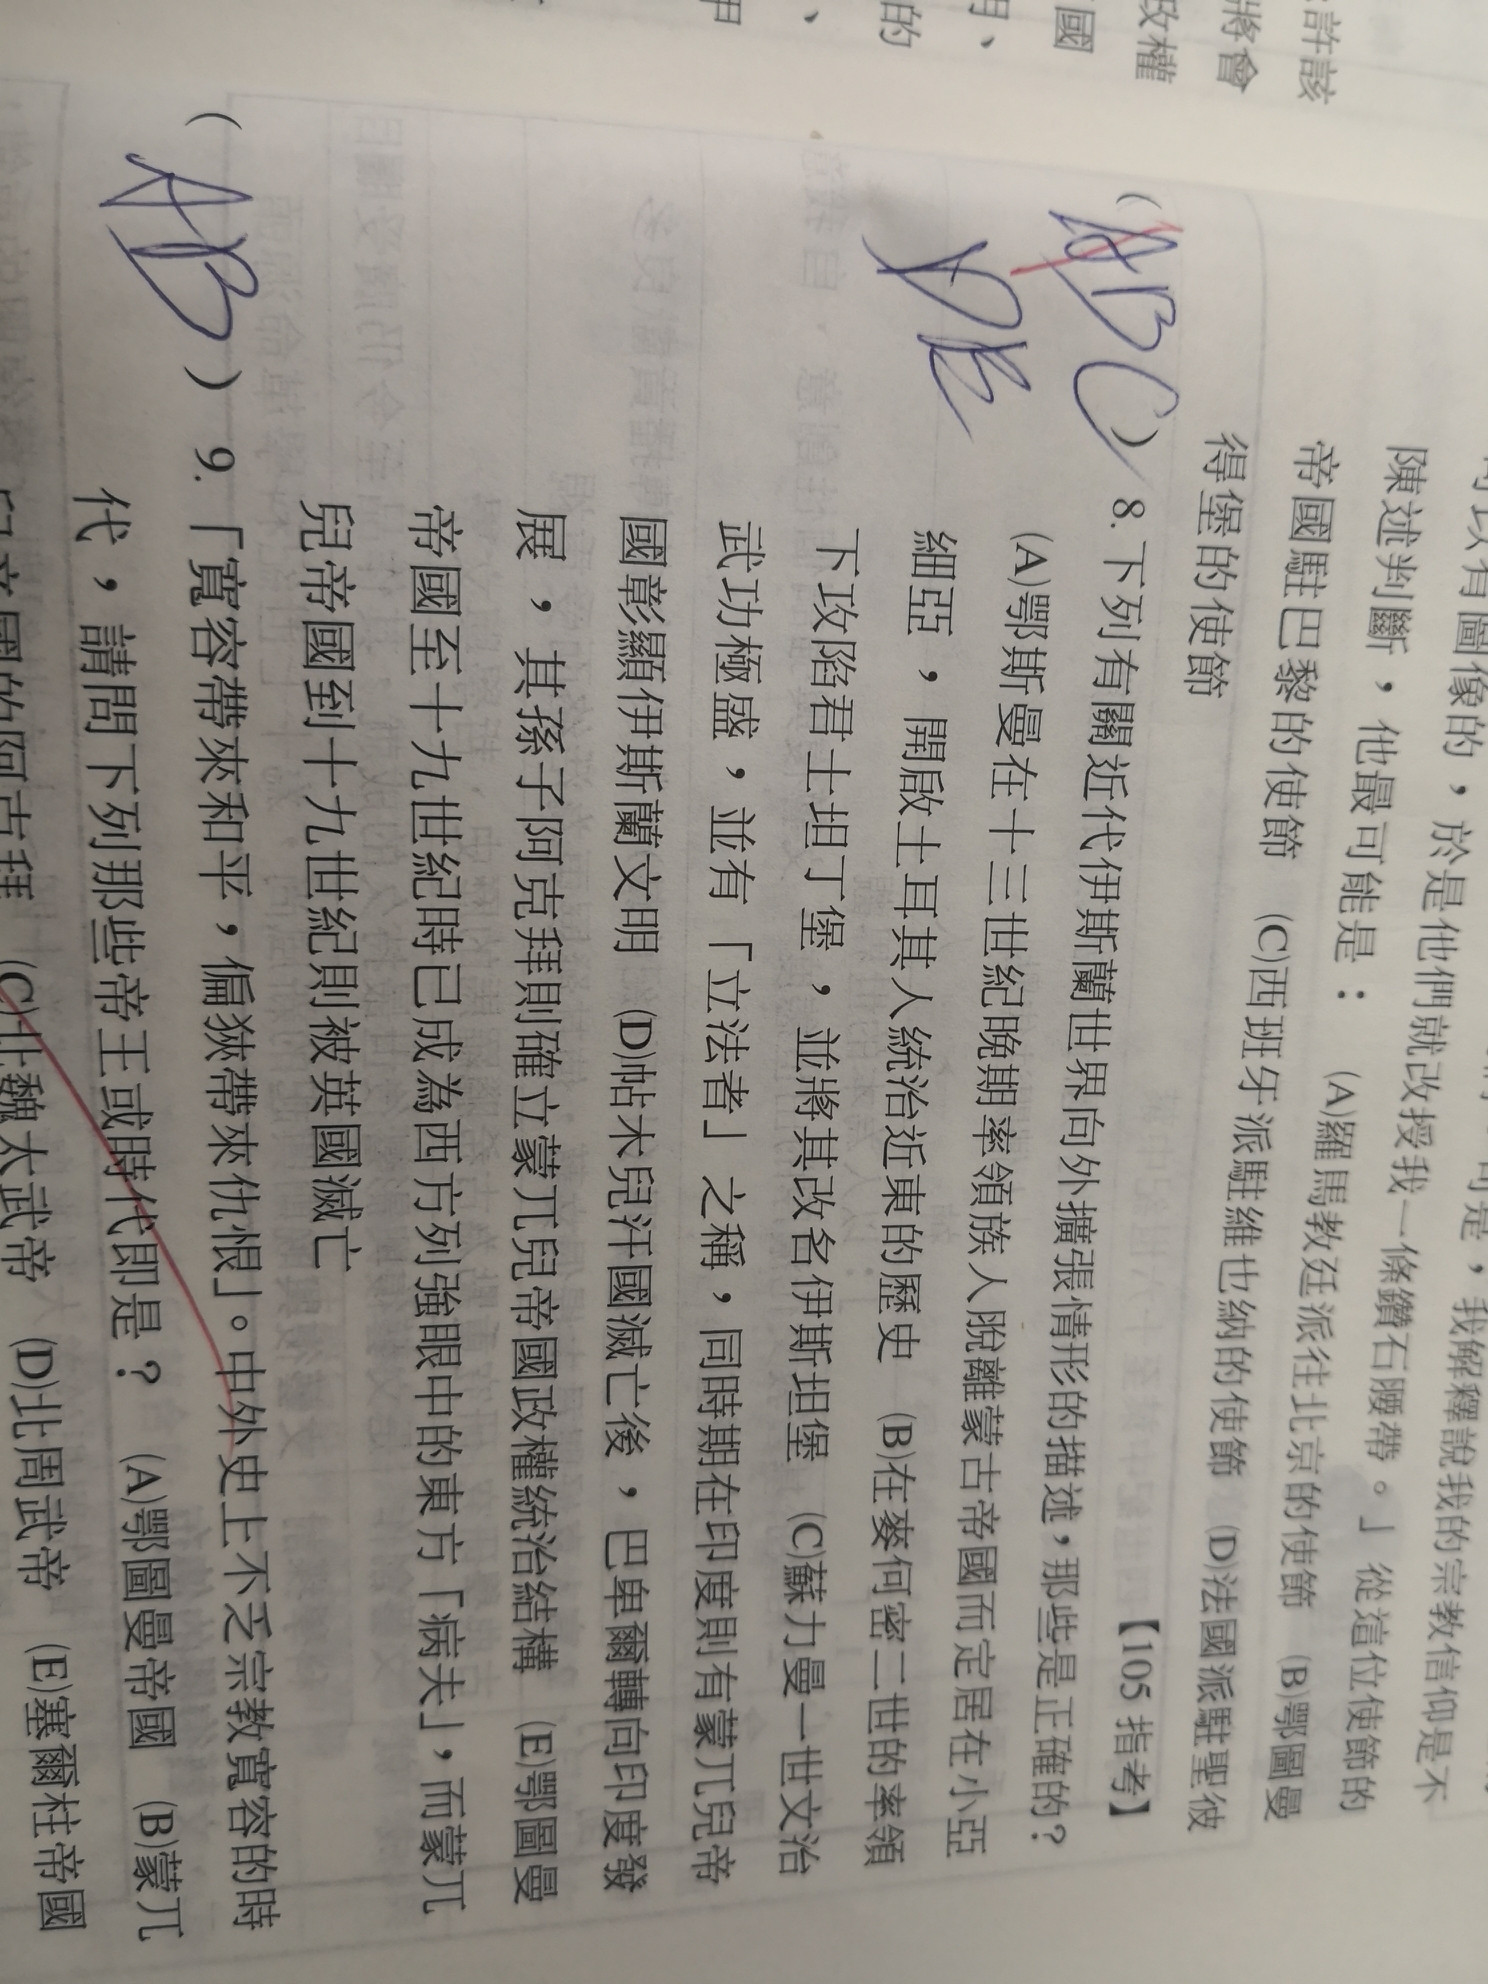 許該
將會
政權
國
的
可以有圖像的，於是他們就改授我一條鑽石腰帶。」從這位使節的
陳述判斷，他最可能是： (A)羅馬教廷派往北京的使節 (B)鄂圖曼
帝國駐巴黎的使節 (C)西班牙派駐維也納的使節 (D)法國派駐聖彼
得堡的使節
【105 指考】
(ABC
DE
) 8. 下列有關近代伊斯蘭世界向外擴張情形的描述，那些是正確的？
(A)鄂斯曼在十三世紀晚期率領族人脫離蒙古帝國而定居在小亞
細亞，開啟土耳其人統治近東的歷史 (B)在麥何密二世的率領
下攻陷君士坦丁堡，並將其改名伊斯坦堡 (C)蘇力曼一世文治
武功極盛，並有「立法者」之稱，同時期在印度則有蒙兀兒帝
國彰顯伊斯蘭文明 (D)帖木兒汗國滅亡後，巴卑爾轉向印度發
展，其孫子阿克拜則確立蒙兀兒帝國政權統治結構 (E)鄂圖曼
帝國至十九世紀時已成為西方列強眼中的東方「病夫」，而蒙兀
兒帝國到十九世紀則被英國滅亡
(AB) 9.「寬容帶來和平，偏狹帶來仇恨」。中外史上不乏宗教寬容的時
代，請問下列那些帝王或時代即是？ (A)鄂圖曼帝國 (B)蒙兀
兒帝國的阿克拜 (C)北魏太武帝 (D)北周武帝 (E)塞爾柱帝國